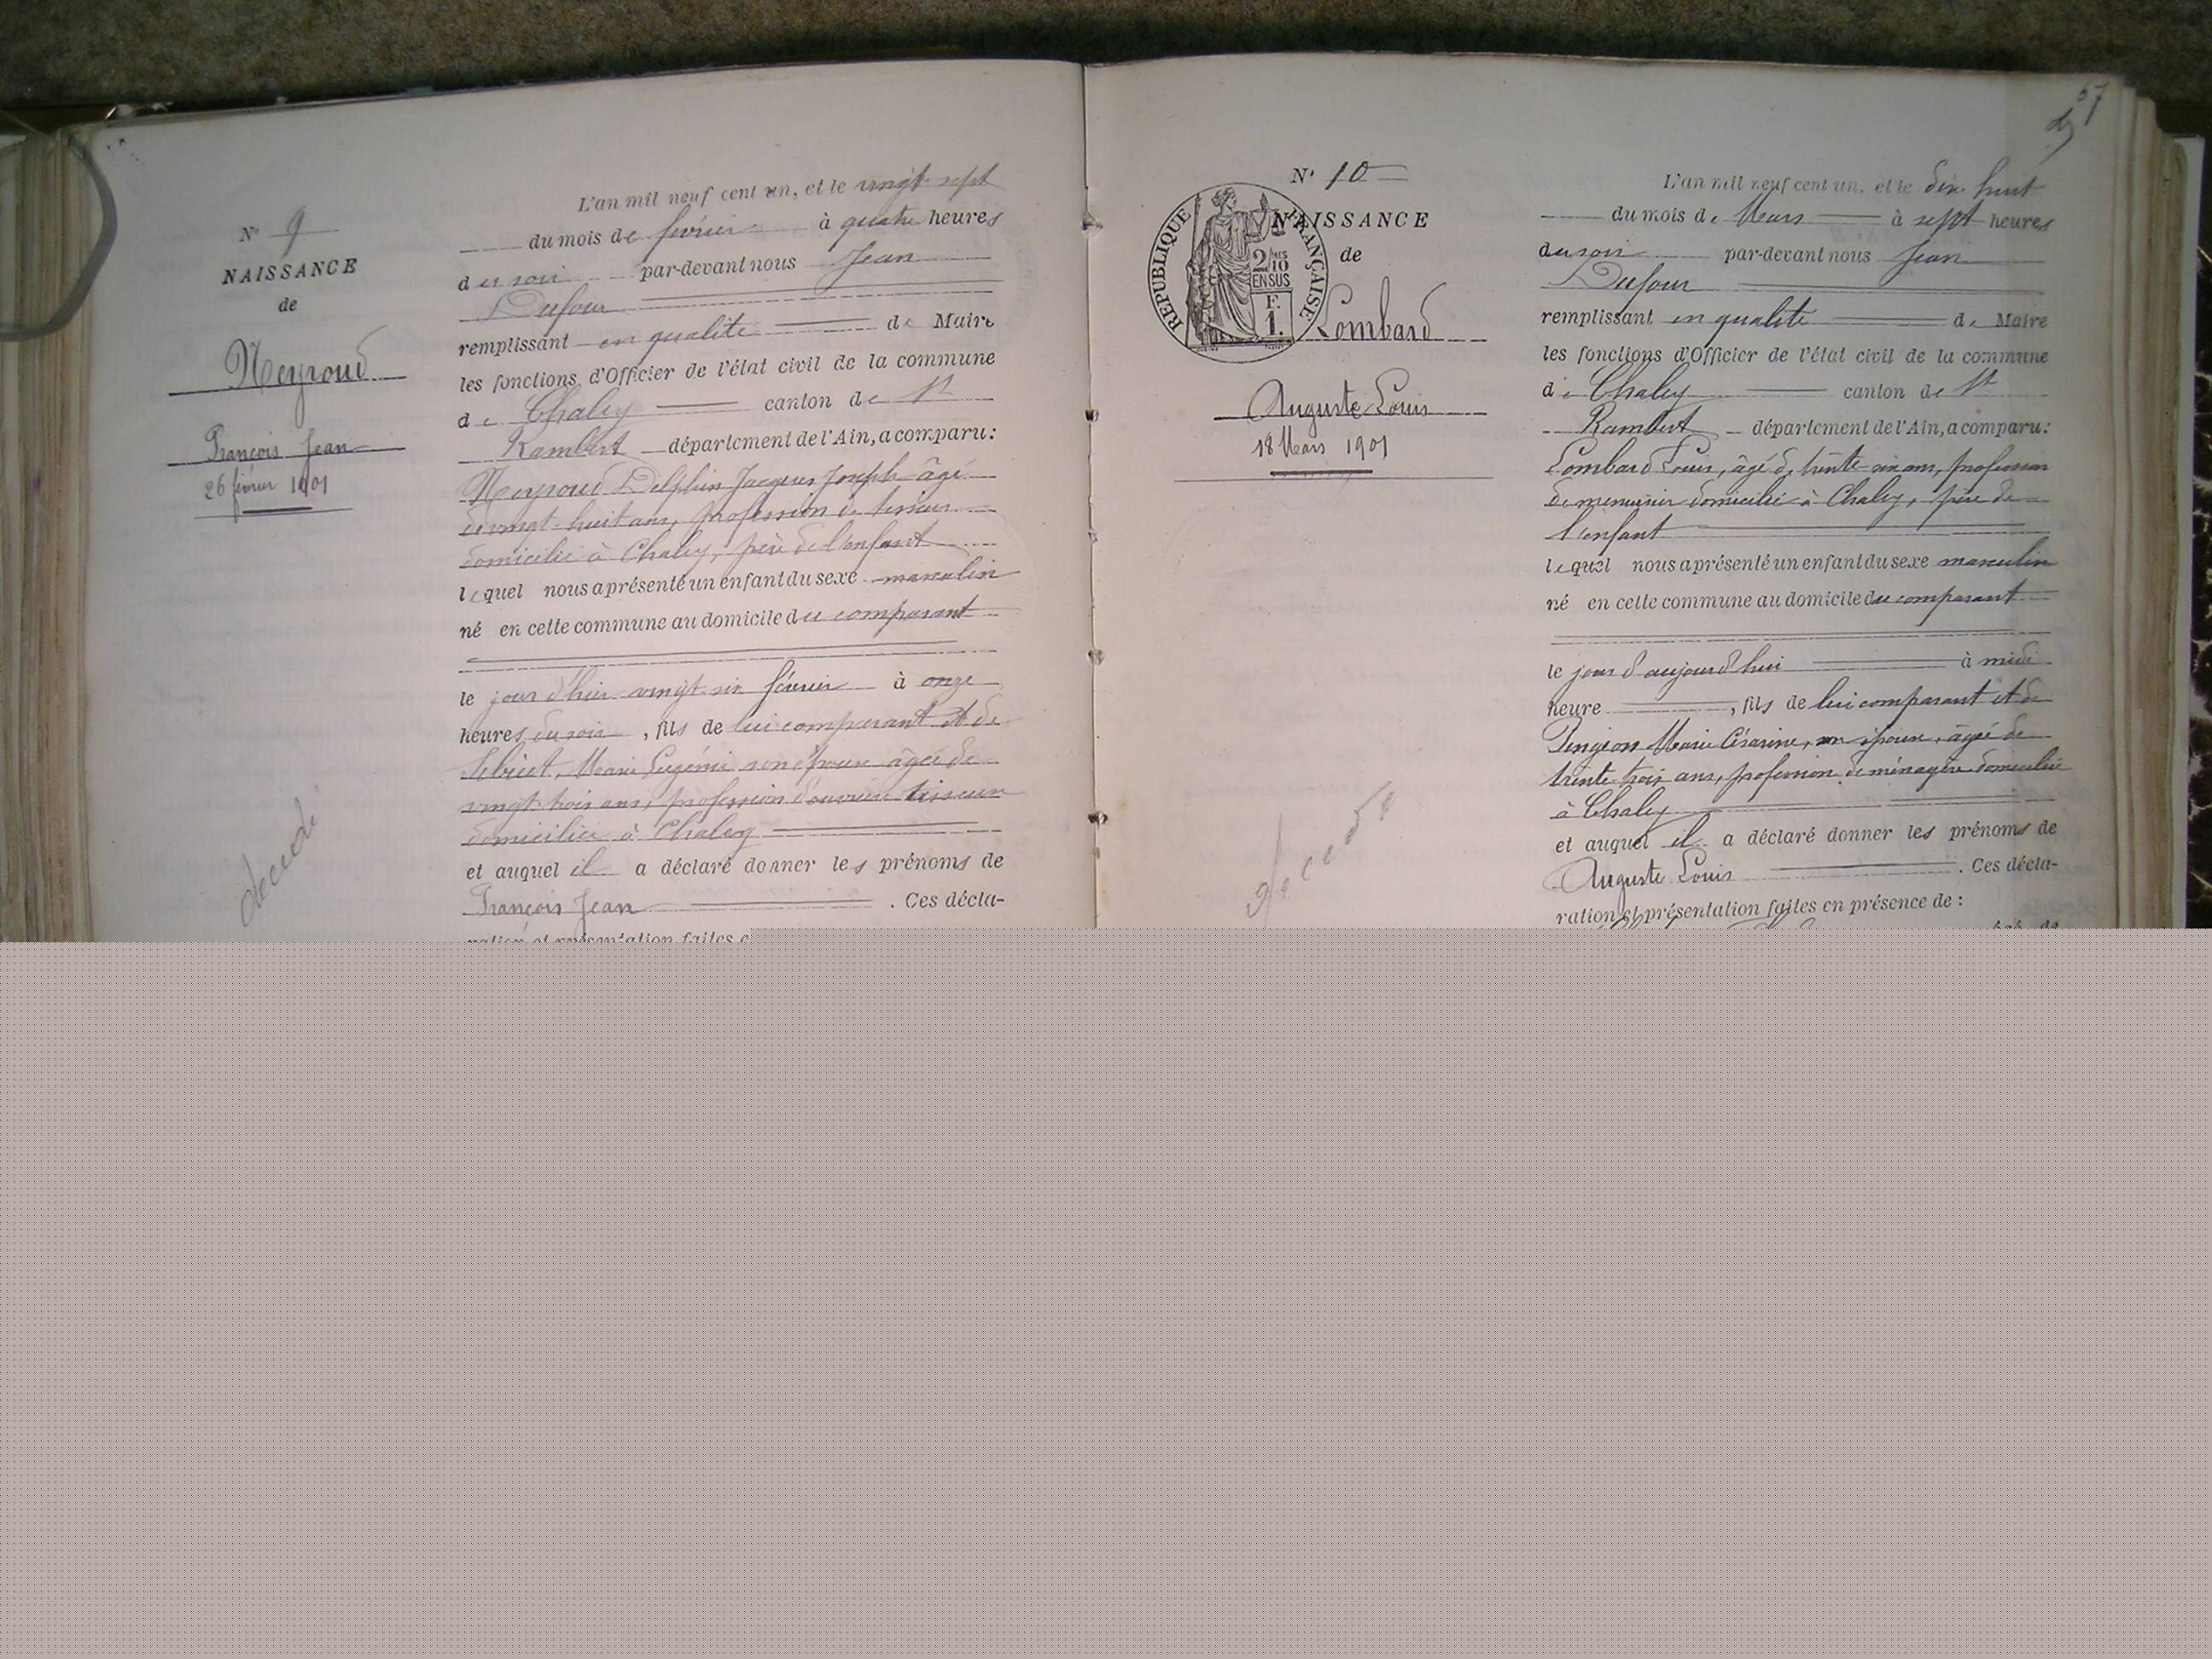 N° 9
NAISSANCE
de
Neyroud
François Jean
26 février 1901
decede
L'an mil neuf cent un, et le vingt sept
du mois de février à quatre heures
du soir par-devant nous Jean
Dufour
remplissant en qualité de Maire
les fonctions d'Officier de l'état civil de la commune
de Chaley canton de St
Rambert département de l'Ain, a comparu:
Neyroud Delphin Jacques Joseph âgé
de vingt-huit ans, profession de tisseur
domicilié à Chaley, père de l'enfant
lequel nous a présenté un enfant du sexe masculin
né en cette commune au domicile du comparant
le jour d'hier vingt six février à onze
heures du soir, fils de lui comparant et de
Marie Eugénie son épouse âgée de
vingt-trois ans, profession d'ouvrière tisseuse
domiciliée à Chaley
et auquel il a déclaré donner les prénoms de
François Jean. Ces décla-
ration et présentation faites
57
N° 10
NAISSANCE
de
REPUBLIQUE FRANÇAISE
2/10
EN SUS
F.
1.
Lombard
Auguste Louis
18 Mars 1901
decede
L'an mil neuf cent un, et le dix huit
du mois de Mars à sept heures
du soir par-devant nous Jean
Dufour
remplissant en qualité de Maire
les fonctions d'Officier de l'état civil de la commune
de Chaley canton de St
Rambert département de l'Ain, a comparu:
Lombard Louis, âgé de trente-six ans, profession
de menuisier domicilié à Chaley, père de
l'enfant
lequel nous a présenté un enfant du sexe masculin
né en cette commune au domicile du comparant
le jour d'aujourd'hui à midi
heure, fils de lui comparant et de
Pingeon Marie Césarine, son épouse, âgée de
trente-trois ans, profession de ménagère domiciliée
à Chaley
et auquel il a déclaré donner les prénoms de
Auguste Louis. Ces décla-
ration et présentation faites en présence de :